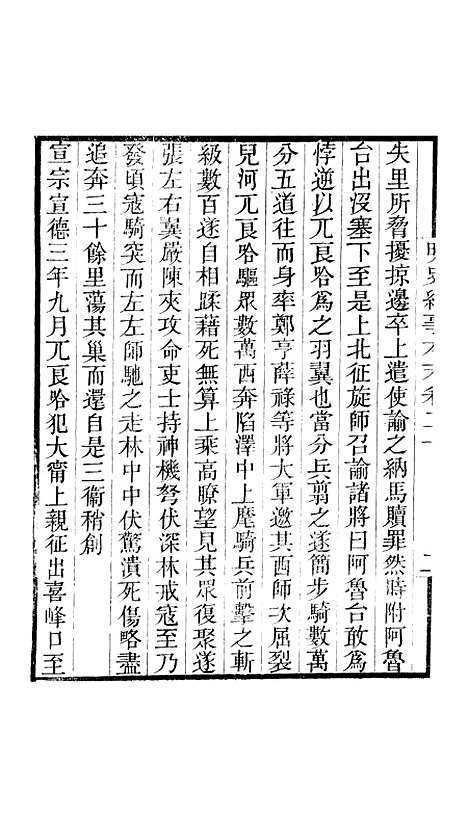 失里所脅擾掠邊卒上遣使諭之納馬贖罪然時附阿魯
台出沒塞下至是上北征旋師召諭諸將曰阿魯台敢爲
悖逆以兀良哈爲之羽翼也當分兵翦之遂簡步騎數萬
分五道往而身率鄭亨薛祿等將大軍邀其西師次屈裂
兒河兀良哈驅眾數萬西奔陷澤中上麾騎兵前擊之斬
級數百遂自相蹂藉死無算上乘高瞭望見其眾復聚遂
張左右翼嚴陳夾攻命吏士持神機弩伏深林戒寇至乃
發頃寇騎突而左左師馳之走林中中伏驚潰死傷略盡
追奔三十餘里蕩其巢而還自是三衞稍創
宣宗宣德三年九月兀良哈犯大甯上親征出喜峰口至
二